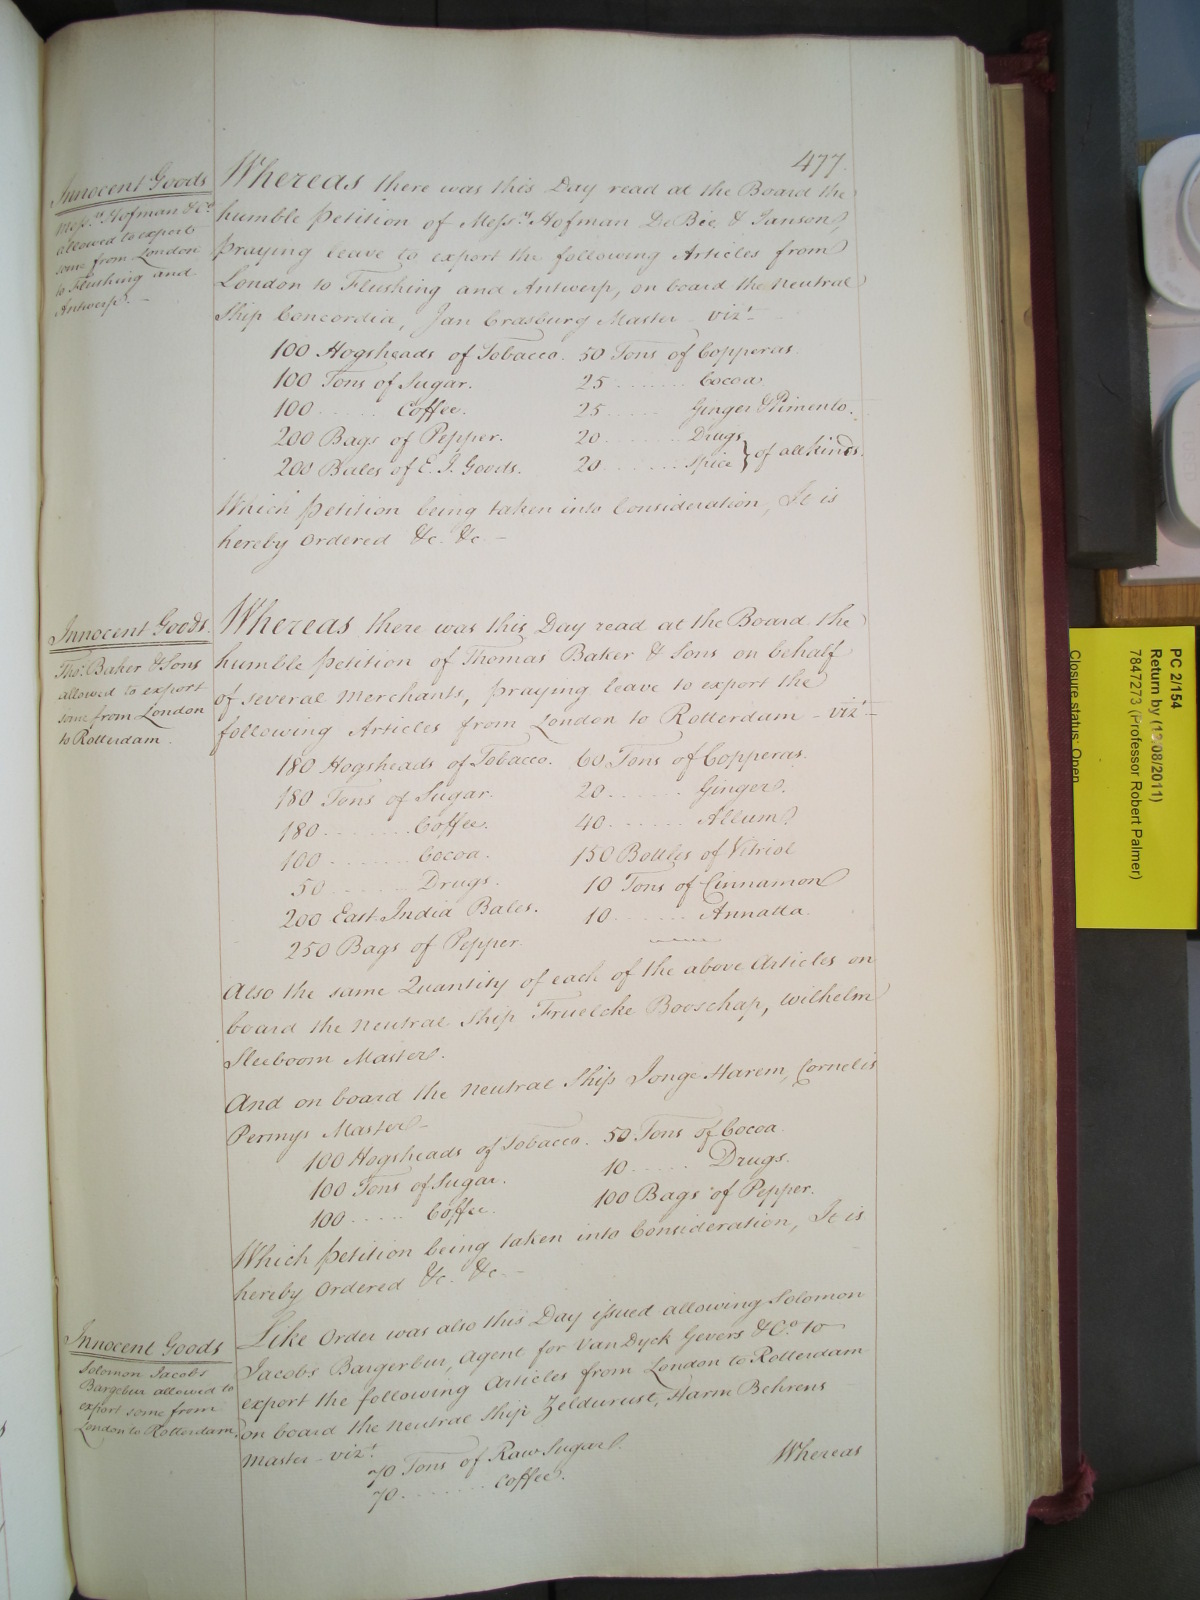 477.
Innocent Goods
Mess.rs Hofman & Co.
allowed to export
some from London
to Flushing and
Antwerp. -
Whereas there was this Day read at the Board the
humble Petition of Mess.rs Hofman De Bie & Janson,
praying leave to export the following Articles from
London to Flushing and Antwerp, on board the Neutral
Ship Concordia, Jan Crasburg Master - viz.t
100 Hogsheads of Tobacco. 50 Tons of Copperas.
100 Tons of Sugar. 25 ....... Cocoa.
100 ....... Coffee. 25 ...... Ginger & Pimento.
200 Bags of Pepper. 20 ....... Drugs
200 Bales of E. I. Goods. 20 ....... Spice } of all kinds.
Which Petition being taken into Consideration, It is
hereby Ordered &c. &c -
Innocent Goods.
Tho.s Baker & Sons
allowed to export
some from London
to Rotterdam.
Whereas there was this Day read at the Board the
humble Petition of Thomas Baker & Sons on behalf
of several Merchants, praying leave to export the
following Articles from London to Rotterdam - viz.t -
180 Hogsheads of Tobacco. 60 Tons of Copperas.
180 Tons of Sugar. 20 ....... Ginger.
180 ........ Coffee. 40 ...... Allum
100 ........ Cocoa. 150 Bottles of Vitriol
50 ........ Drugs. 10 Tons of Cinnamon
200 East India Bales. 10 ....... Annatta.
250 Bags of Pepper.
Also the same Quantity of each of the above Articles on
board the Neutral Ship Fruelcke Booschap, Wilhelm
Sleeboom Master.
And on board the Neutral Ship Jonge Harem, Cornelis
Permys Master -
100 Hogsheads of Tobacco. 50 Tons of Cocoa.
100 Tons of Sugar. 10 ..... Drugs.
100 ..... Coffee. 100 Bags of Pepper.
Which Petition being taken into Consideration, It is
hereby Ordered &c. &c. -
Innocent Goods
Solomon Jacobs
Bargebur allowed to
export some from
London to Rotterdam.
Like Order was also this Day issued allowing Solomon
Jacobs Bargerbur, Agent for Van Dyck Gevers & Co. to
export the following Articles from London to Rotterdam
on board the Neutral Ship Zeldurust, Harm Behrens
Master - viz.t
70 Tons of Raw Sugar.
70 ........ Coffee.
Whereas
PC 2/154
Return by (12/08/2011)
7847273 (Professor Robert Palmer)
Closure status: Open